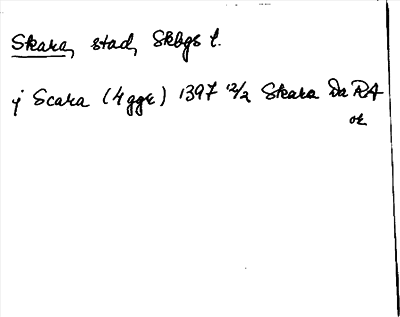 Skara, stad, Skbgs l.
j Scara (4 ggr) 1397 12/2 Skara Da RA
or